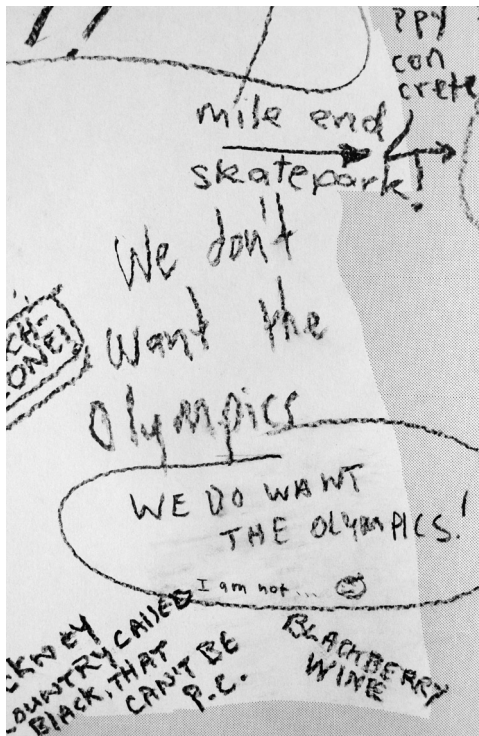 ppy
con
crete
mile end
skatepark!
We don't
want the
Olympics
CH-
ONE!
WE DO WANT
THE OLYMPICS!
I am not...
CKNEY
COUNTRY CALLED
BLACK, THAT
CAN'T BE
P.C.
BLACKBERRY
WINE